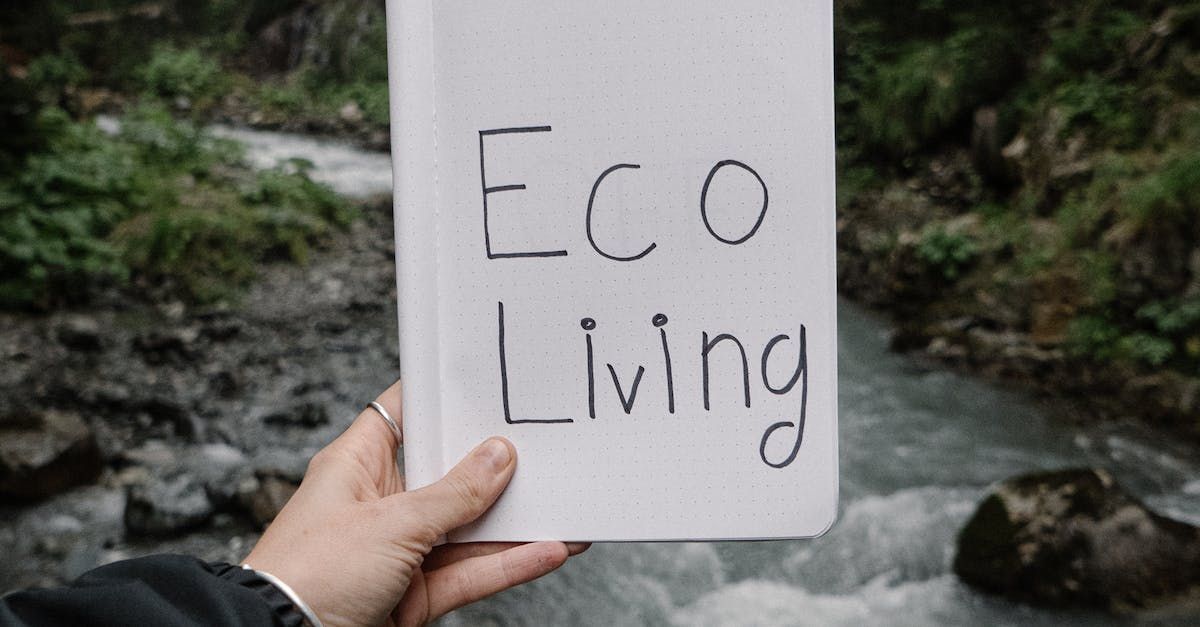 Eco
Living